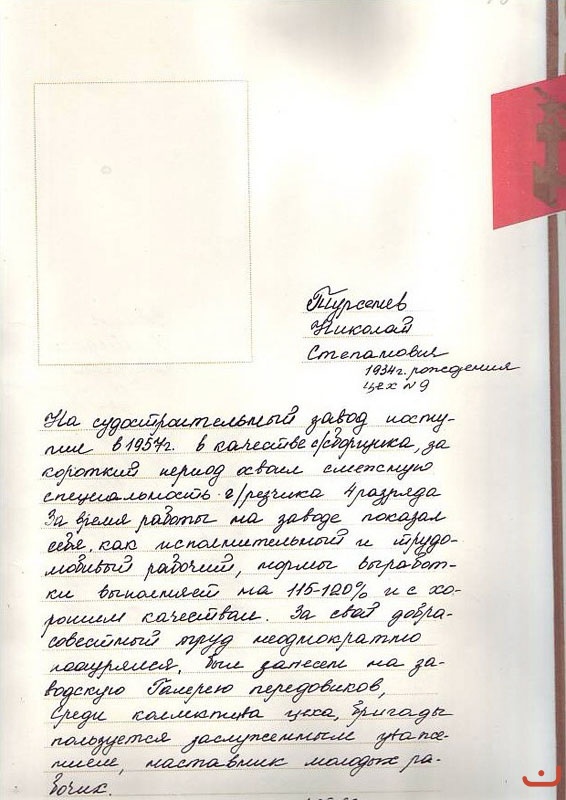 Турсенев
Николай
Степанович
1934г. рождения
цех N9
На судостроительный завод посту-
пил в 1957г. в качестве с/сборщика, за
короткий период освоил смежную
специальность г/резчика 4 разряда
За время работы на заводе показал
себя, как исполнительный и трудо-
любивый рабочий, нормы выработ-
ки выполняет на 115-120% и с хо-
рошим качеством. За свой добро-
совестный труд неоднократно
поощрялся, был занесен на за-
водскую Галерею передовиков,
Среди коллектива цеха, бригады
пользуется заслуженным уваже-
нием, наставник молодых ра-
бочих.